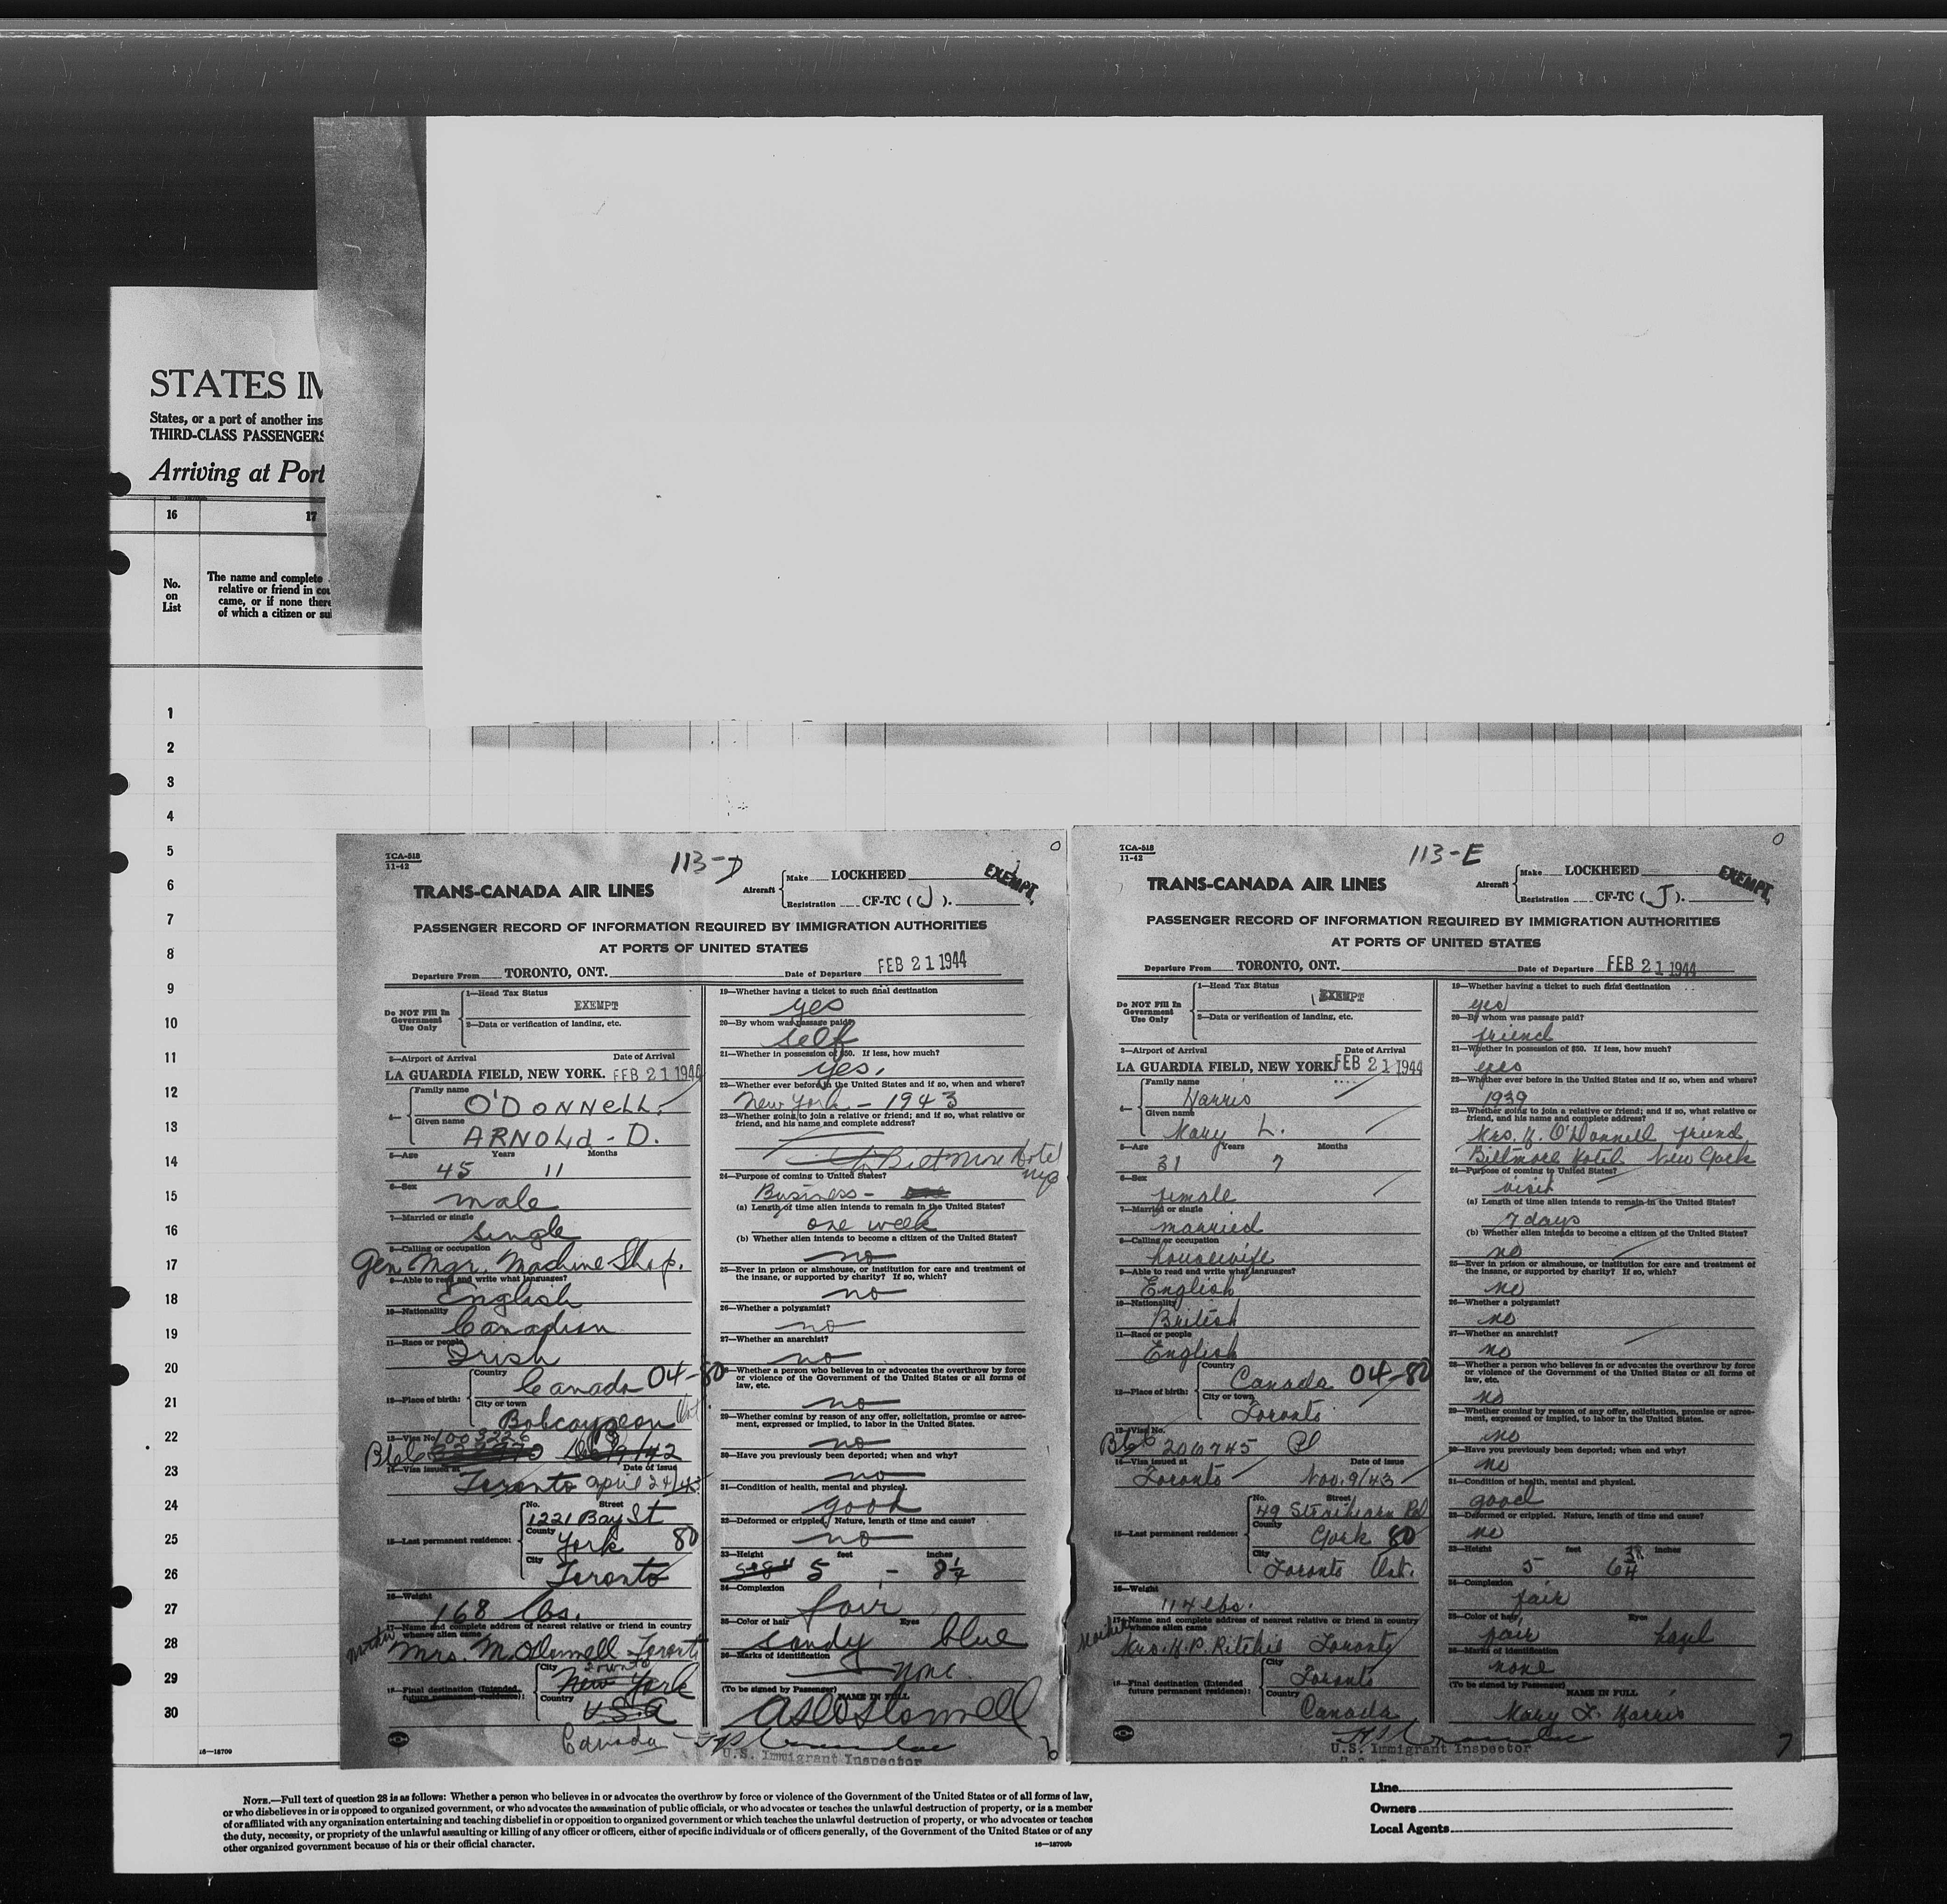 STATES IM
States, or a port of another ins
THIRD-CLASS PASSENGERS
Arriving at Port
16 17
No. on List
The name and complete
relative or friend in cou
came, or if none there
of which a citizen or su
1
2
3
4
5
6
7
8
9
10
11
12
13
14
15
16
17
18
19
20
21
22
23
24
25
26
27
28
29
30
16—18709
TCA-518
11-42
113-D
TRANS-CANADA AIR LINES
Aircraft
Make LOCKHEED
Registration CF-TC (J).
EXEMPT
PASSENGER RECORD OF INFORMATION REQUIRED BY IMMIGRATION AUTHORITIES
AT PORTS OF UNITED STATES
Departure From TORONTO, ONT. Date of Departure FEB 21 1944
Do NOT Fill In
Government
Use Only
1—Head Tax Status
EXEMPT
2—Data or verification of landing, etc.
3—Airport of Arrival Date of Arrival
LA GUARDIA FIELD, NEW YORK. FEB 21 1944
4—
Family name
O'DONNELL.
Given name
ARNOLD - D.
5—Age Years Months
45 11
6—Sex
male
7—Married or single
single
8—Calling or occupation
Gen Mgr. Machine Shop.
9—Able to read and write what languages?
English
10—Nationality
Canadian
11—Race or people
Irish
12—Place of birth:
Country
Canada 04-80
City or town
Bobcaygeon Ont
13—Visa No. 1003226
14—Visa issued at Date of Issue
Toronto April 24/43
15—Last permanent residence:
No. Street
1221 Bay St
County
York 80
City
Toronto
16—Weight
168 lbs.
17—Name and complete address of nearest relative or friend in country
whence alien came
mother Mrs. M. O'Donnell Toronto
18—Final destination (Intended
future permanent residence):
City
New York
Country
U.S.A
Canada
19—Whether having a ticket to such final destination
yes
20—By whom was passage paid?
self
21—Whether in possession of $50. If less, how much?
yes.
22—Whether ever before in the United States and if so, when and where?
New York - 1943
23—Whether going to join a relative or friend; and if so, what relative or
friend, and his name and complete address?
Biltmore Hotel
nyc
24—Purpose of coming to United States?
Business -
(a) Length of time alien intends to remain in the United States?
one week
(b) Whether alien intends to become a citizen of the United States?
no
25—Ever in prison or almshouse, or institution for care and treatment of
the insane, or supported by charity? If so, which?
no
26—Whether a polygamist?
no
27—Whether an anarchist?
no
28—Whether a person who believes in or advocates the overthrow by force
or violence of the Government of the United States or all forms of
law, etc.
no
29—Whether coming by reason of any offer, solicitation, promise or agree-
ment, expressed or implied, to labor in the United States.
no
30—Have you previously been deported; when and why?
no
31—Condition of health, mental and physical.
good
32—Deformed or crippled. Nature, length of time and cause?
no
33—Height feet inches
5 - 8½
34—Complexion
fair
35—Color of hair Eyes
sandy blue
36—Marks of identification
none.
(To be signed by Passenger)
NAME IN FULL
U.S. Immigrant Inspector
6
TCA-518
11-42
113-E
TRANS-CANADA AIR LINES
Aircraft
Make LOCKHEED
Registration CF-TC (J).
EXEMPT
PASSENGER RECORD OF INFORMATION REQUIRED BY IMMIGRATION AUTHORITIES
AT PORTS OF UNITED STATES
Departure From TORONTO, ONT. Date of Departure FEB 21 1944
Do NOT Fill In
Government
Use Only
1—Head Tax Status
EXEMPT
2—Data or verification of landing, etc.
3—Airport of Arrival Date of Arrival
LA GUARDIA FIELD, NEW YORK. FEB 21 1944
4—
Family name
Harris
Given name
Mary L.
5—Age Years Months
31 7
6—Sex
female
7—Married or single
married
8—Calling or occupation
housewife
9—Able to read and write what languages?
English
10—Nationality
British
11—Race or people
English
12—Place of birth:
Country
Canada 04-80
City or town
Toronto
13—Visa No.
206745
14—Visa issued at Date of Issue
Toronto Nov. 9/43
15—Last permanent residence:
No. Street
49 Strathearn Rd
County
York 80
City
Toronto Ont.
16—Weight
114 lbs.
17—Name and complete address of nearest relative or friend in country
whence alien came
Mother Mrs. H. P. Ritchie Toronto
18—Final destination (Intended
future permanent residence):
City
Toronto
Country
Canada
19—Whether having a ticket to such final destination
yes
20—By whom was passage paid?
friend
21—Whether in possession of $50. If less, how much?
yes
22—Whether ever before in the United States and if so, when and where?
1939
23—Whether going to join a relative or friend; and if so, what relative or
friend, and his name and complete address?
Mrs. O'Donnell friend
Biltmore Hotel New York
24—Purpose of coming to United States?
visit
(a) Length of time alien intends to remain in the United States?
7 days
(b) Whether alien intends to become a citizen of the United States?
no
25—Ever in prison or almshouse, or institution for care and treatment of
the insane, or supported by charity? If so, which?
no
26—Whether a polygamist?
no
27—Whether an anarchist?
no
28—Whether a person who believes in or advocates the overthrow by force
or violence of the Government of the United States or all forms of
law, etc.
no
29—Whether coming by reason of any offer, solicitation, promise or agree-
ment, expressed or implied, to labor in the United States.
no
30—Have you previously been deported; when and why?
no
31—Condition of health, mental and physical.
good
32—Deformed or crippled. Nature, length of time and cause?
no
33—Height feet inches
5 6¾
34—Complexion
fair
35—Color of hair Eyes
fair hazel
36—Marks of identification
none
(To be signed by Passenger)
NAME IN FULL
Mary L. Harris
U.S. Immigrant Inspector
7
NOTE.—Full text of question 28 is as follows: Whether a person who believes in or advocates the overthrow by force or violence of the Government of the United States or of all forms of law,
or who disbelieves in or is opposed to organized government, or who advocates the assassination of public officials, or who advocates or teaches the unlawful destruction of property, or is a member
of or affiliated with any organization entertaining and teaching disbelief in or opposition to organized government or which teaches the unlawful destruction of property, or who advocates or teaches
the duty, necessity, or propriety of the unlawful assaulting or killing of any officer or officers, either of specific individuals or of officers generally, of the Government of the United States or of any
other organized government because of his or their official character.
16—18709b
Line
Owners
Local Agents